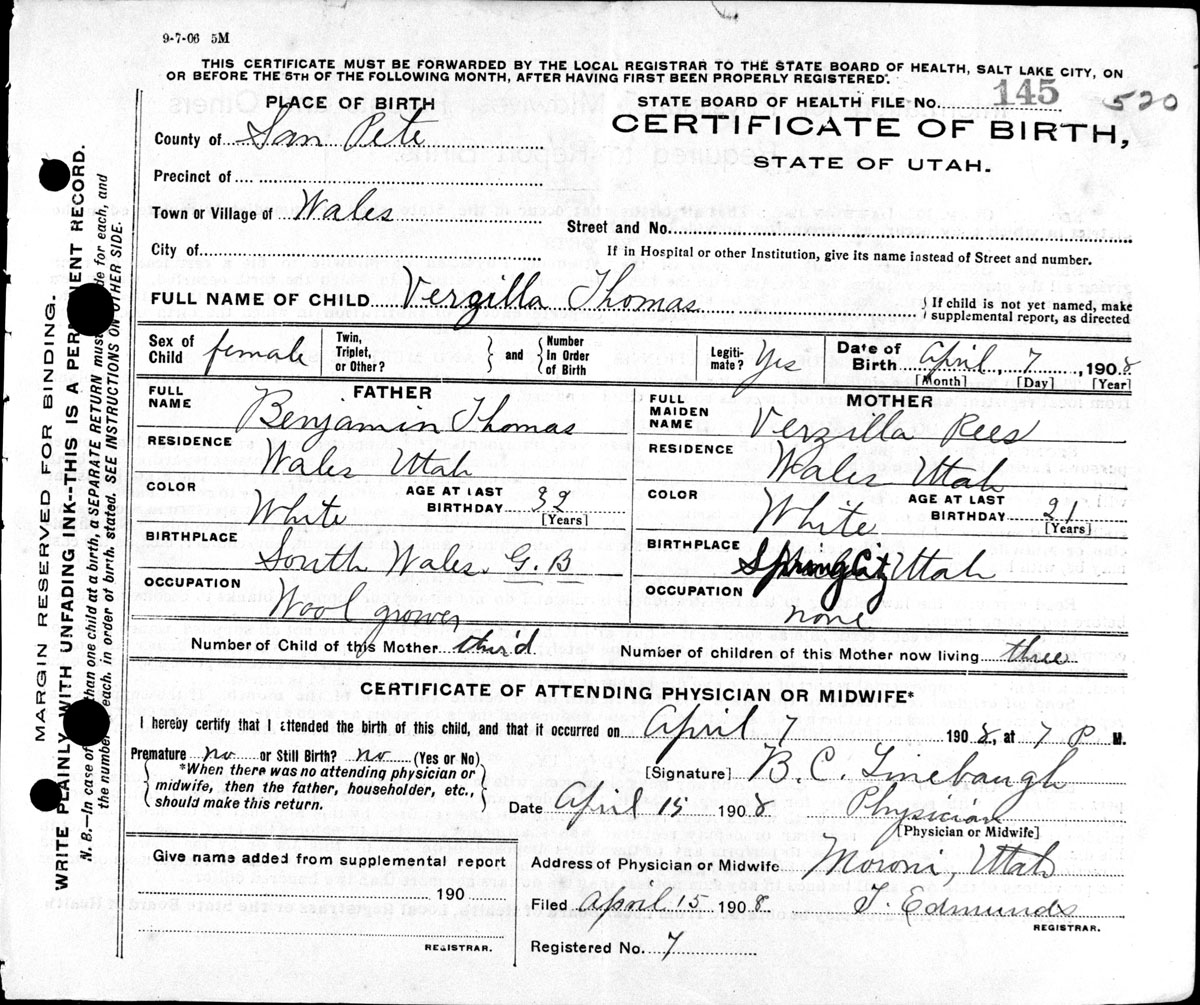 9-7-06 5M
THIS CERTIFICATE MUST BE FORWARDED BY THE LOCAL REGISTRAR TO THE STATE BOARD OF HEALTH, SALT LAKE CITY, ON
OR BEFORE THE 5TH OF THE FOLLOWING MONTH, AFTER HAVING FIRST BEEN PROPERLY REGISTERED.
PLACE OF BIRTH
County of San Pete
Precinct of
Town or Village of Wales
City of
STATE BOARD OF HEALTH FILE No. 145 520
CERTIFICATE OF BIRTH,
STATE OF UTAH.
Street and No.
If in Hospital or other Institution, give its name instead of Street and number.
FULL NAME OF CHILD Verzilla Thomas
If child is not yet named, make
supplemental report, as directed
Sex of Child female
Twin, Triplet, or Other?
and Number In Order of Birth
Legiti-mate? Yes
Date of Birth April 7, 1908
[Month] [Day] [Year]
FATHER
FULL NAME Benjamin Thomas
RESIDENCE Wales Utah
COLOR White AGE AT LAST BIRTHDAY 32
[Years]
BIRTHPLACE South Wales. G. B
OCCUPATION Wool grower
MOTHER
FULL MAIDEN NAME Verzilla Rees
RESIDENCE Wales Utah
COLOR White AGE AT LAST BIRTHDAY 21
[Years]
BIRTHPLACE Spring City Utah
OCCUPATION none
Number of Child of this Mother third Number of children of this Mother now living three
CERTIFICATE OF ATTENDING PHYSICIAN OR MIDWIFE*
I hereby certify that I attended the birth of this child, and that it occurred on April 7 1908, at 7 P M.
Premature no or Still Birth? no (Yes or No)
*When there was no attending physician or
midwife, then the father, householder, etc.,
should make this return.
[Signature] B. C. Linebaugh
Date April 15 1908 Physician
[Physician or Midwife]
Give name added from supplemental report
190
REGISTRAR.
Address of Physician or Midwife Moroni, Utah
Filed April 15 1908 T. Edmunds
REGISTRAR.
Registered No. 7
MARGIN RESERVED FOR BINDING.
WRITE PLAINLY WITH UNFADING INK--THIS IS A PERMANENT RECORD.
N. B.—In case of than one child at a birth, a SEPARATE RETURN must de for each, and
the number each, in order of birth, stated. SEE INSTRUCTIONS ON OTHER SIDE.